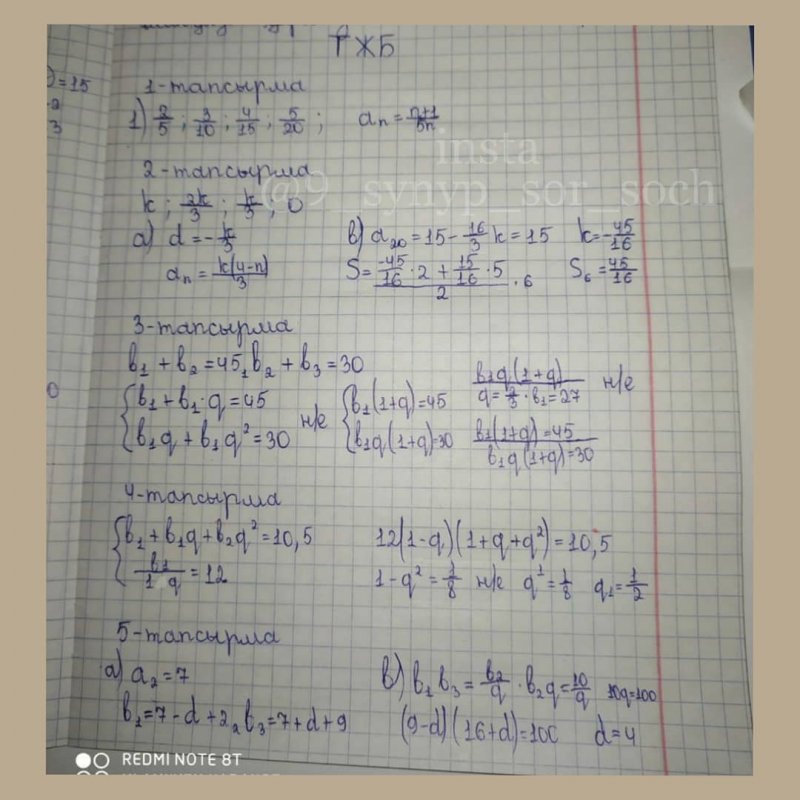 ТЖБ
)=15
1-тапсырма
1) 2/5 ; 3/10 ; 4/15 ; 5/20 ; aₙ = n+1/5n
insta
2-тапсырма
@9_synyp_sor_soch
k ; 2k/3 ; k/3 , 0
a) d = -k/3
aₙ = k(4-n)/3
b) a₂₀ = 15 - 16/3 k = 15 k = -45/16
S = (-45/16 · 2 + 15/16 · 5)/2 · 6 S₆ = 45/16
3-тапсырма
b₁ + b₂ = 45, b₂ + b₃ = 30
{ b₁ + b₁·q = 45
{ b₁q + b₁q² = 30
н/е
{ b₁(1+q) = 45
{ b₁q(1+q) = 30
b₁q(1+q)/q = 2/3 · b₁ = 27 н/е
b₁(1+q) = 45/b₁q(1+q) = 30
4-тапсырма
{ b₁ + b₁q + b₂q² = 10,5
{ b₁/1 q = 12
12(1-q)(1+q+q²) = 10,5
1-q² = 1/8 н/е q¹ = 1/8 q₁ = 1/2
5-тапсырма
a) a₂ = 7
b₁ = 7-d+2₂ b₃ = 7+d+9
b) b₁ b₃ = b₂/q · b₂q = 10/q 10q = 100
(9-d)(16+d) = 100 d = 4
REDMI NOTE 8T